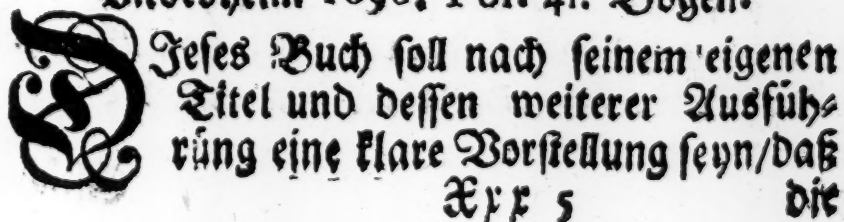 DJeses Buch soll nach seinem eigenen
Titel und dessen weiterer Ausfüh⸗
rung eine klare Vorstellung seyn/daß
Xxx 5 die